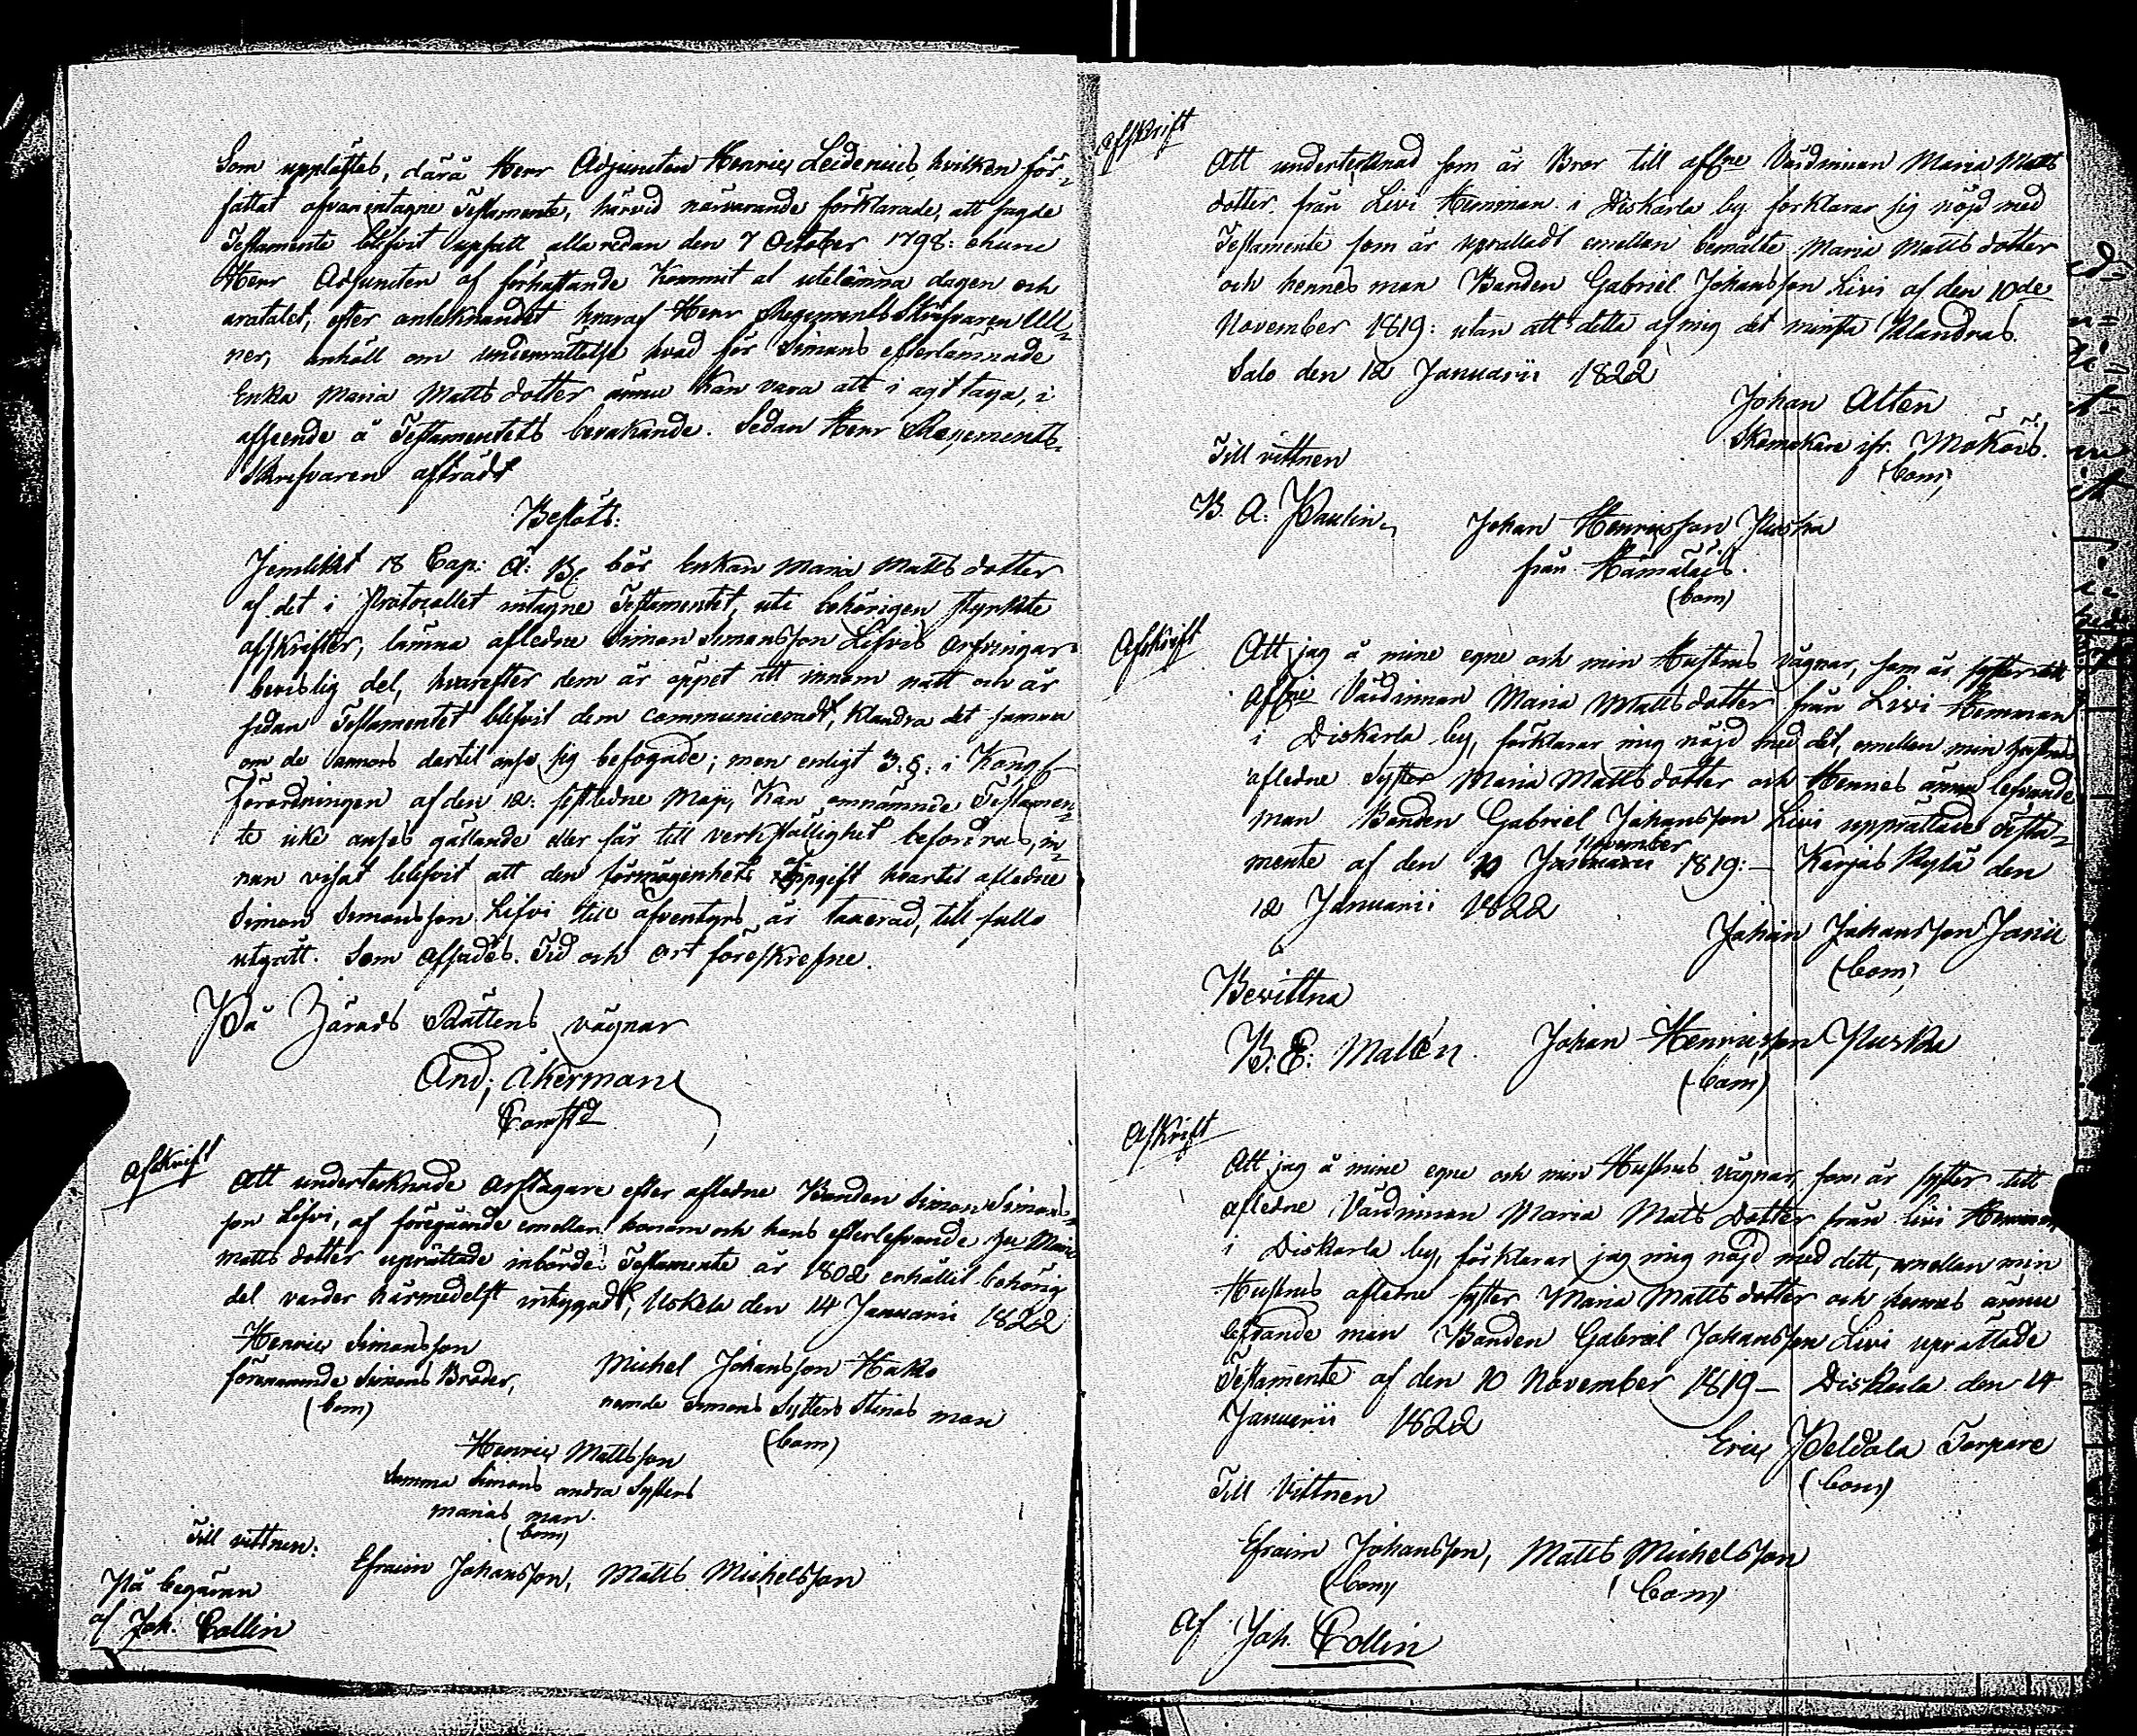 Som uppläftes, därå Herr Adjuncten Henric Leidenius, hvilken för-
fattat ofvanintagne Testamente, härvid närvarande förklarade, att sagde
Testamente blifvit upsatt allaredan den 7 October 1798: ehuru
Herr Adjuncten af förhastande kommit at utelämna dagen och
åratalet, efter antecknandet hvaraf Herr Regements Skrifvaren Ull-
ner, anhöll om underrättelse hvad för Simons efterlämnade
Enka Maria Matts dotter ännu kan vara att i agt taga, i
afseende å Testamentets bevakande. Sedan Herr Regements-
Skrifvaren afträdt
Beslöts:
Jemlikt 18 Cap: Ä: B: bör Enkan Maria Matts dotter
af det i Protocollet intagne Testamentet, uti behörigen styrkte
afskrifter, lämna afledne Simon Simonsson Lifvis arfvingar
bevislig del, hvarefter dem är öppet att innom natt och år
sedan Testamentet blifvit dem communiceradt, klandra det samma
om de annars dertil anse sig befogade; men enligt 3: §: i Kongl
Förordningen af den 12: sistledne Maji, kan omnämnde Testamen-
te icke anses gällande eller får till verkställighet befordras, in-
nan visat blifvit att den förmögenhets afgift hvartil afledne
Simon Simonsson Lifvi till äfventyrs är taxerad, till fullo
utgått. Som afsades. Tid och ort föreskrefne.
På Härads Rättens vägnar
And; Åkerman
Afskrift
Att undertecknade arftagare efter afledne Bonden Simon Simons-
son Lifvi, af föregående emellan honom och hans efterlefvande hu Maria
Matts dotter uprättade inbördes Testamente år 1802 erhållit behörig
del varder härmedelst intygadt; Uskela den 14 Januarii 1822
Henric Simonsson
förenämnde Simons Broder,
(bom)
Michel Johansson Hakko
nemde Simons Systers Stinas man
(bom)
Henric Mattsson
Samma Simons andra Systers
Marias man.
(bom)
Till vittnen:
Efraim Johansson, Matts Michelsson
På begäran
af Joh. Collin
Afskrift
Att undertecknad som är Bror till aflne Värdinnan Maria Matts
dotter från Livi Hemman i Diskarla by förklarar sig nöjd med
Testamente som är uprättadt emellan bemälte Maria Matts dotter
och hennes man Bonden Gabriel Johansson Livi af den 10de
November 1819: utan att detta af mig det minsta klandras.
Salo den 12 Januarii 1822
Johan Alten
Skomakare ifr. Mökös.
(bom)
Till vittnen
B. A. Paulin, Johan Henricsson Puska
från Hämäläis.
(bom)
Afskrift
Att jag å mine egne och min Hustrus vägnar, som är syster till
aflne Värdinnan Maria Matts dotter från Livi Hemman
i Diskarla by, förklarar mig nöjd med det, emellan min hustrus
afledne Syster Maria Matts dotter och Hennes ännu lefvande
man Bonden Gabriel Johansson Livi upprättade Testa-
November
mente af den 10 Januarii 1819:— Karjas Kylä den
12 Januarii 1822
Johan Johansson Janii
(bom)
Bevittna
B: E: Malén. Johan Henricsson Puska
(bom)
Afskrift
Att jag å mine egne och min Hustrus vägnar, som är syster till
afledne Värdinnan Maria Matts Dotter från Livi Hemman
i Diskarla by, förklarar jag mig nöjd med dett, emellan min
Hustrus afledne syster Maria Matts dotter och hennes ännu
lefvande man Bonden Gabriel Johansson Livi uprättade
Testamente af den 10 November 1819— Diskarla den 14
Januarii 1822
Eric Peldola Torpare
(bom)
Till Vittnen
Efraim Johansson, Matts Michelsson
(bom) (bom)
Af Joh. Collin